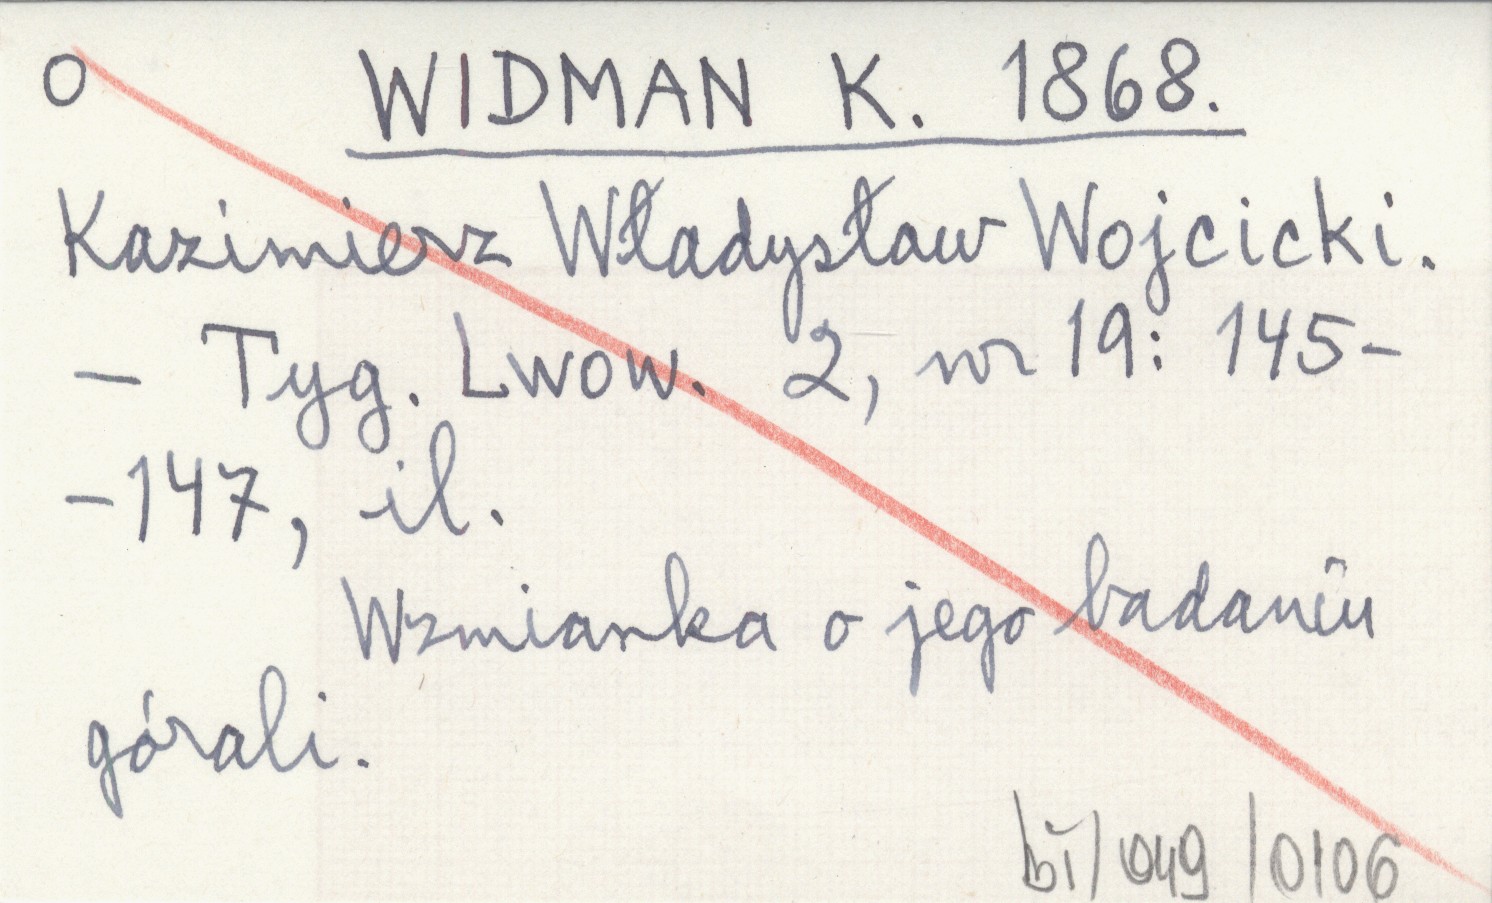 O WIDMAN K. 1868.
Kazimierz Władysław Wojcicki.
– Tyg. Lwow. 2, nr 19: 145–
–147, il.
Wzmianka o jego badaniu
górali.
bi/049/0106